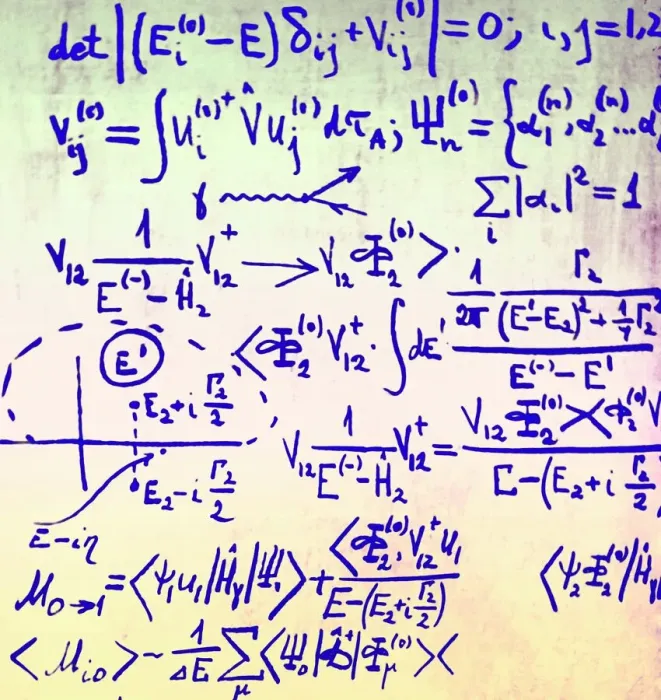 det|(E_i^{(0)}-E)δ_{ij}+V_{ij}^{(0)}|=0; i,j=1,2
V_{ij}^{(0)}=∫u_i^{(0)+}V̂u_j^{(0)}dτ_A; Ψ_n^{(0)}={α_1^{(n)},α_2^{(n)}...α
γ
∑_i|α_i|^2=1
V_{12} 1/(E^{(-)}-Ĥ_2) V_{12}^+ → V_{12}Φ_2^{(0)}>·
<Φ_2^{(0)}V_{12}^+·∫dE' (1/2π Γ_2/((E'-E_2)^2+¼Γ_2))/(E^{(-)}-E')
E'
E_2+i Γ_2/2
E_2-i Γ_2/2
E-iη
V_{12} 1/(E^{(-)}-Ĥ_2) V_{12}^+ = V_{12}Φ_2^{(0)}><Φ_2^{(0)}V/(E-(E_2+i Γ_2/2
M_{0→1}=<ψ_1u_1|Ĥ_γ|Ψ_0>+<Φ_2^{(0)},V_{12}^+u_1/(E-(E_2+i Γ_2/2)) <ψ_2Φ_2^{(0)}|Ĥ_γ
<M_{i0}>~ 1/ΔE ∑_μ<Ψ_0| |Φ_μ^{(0)}><